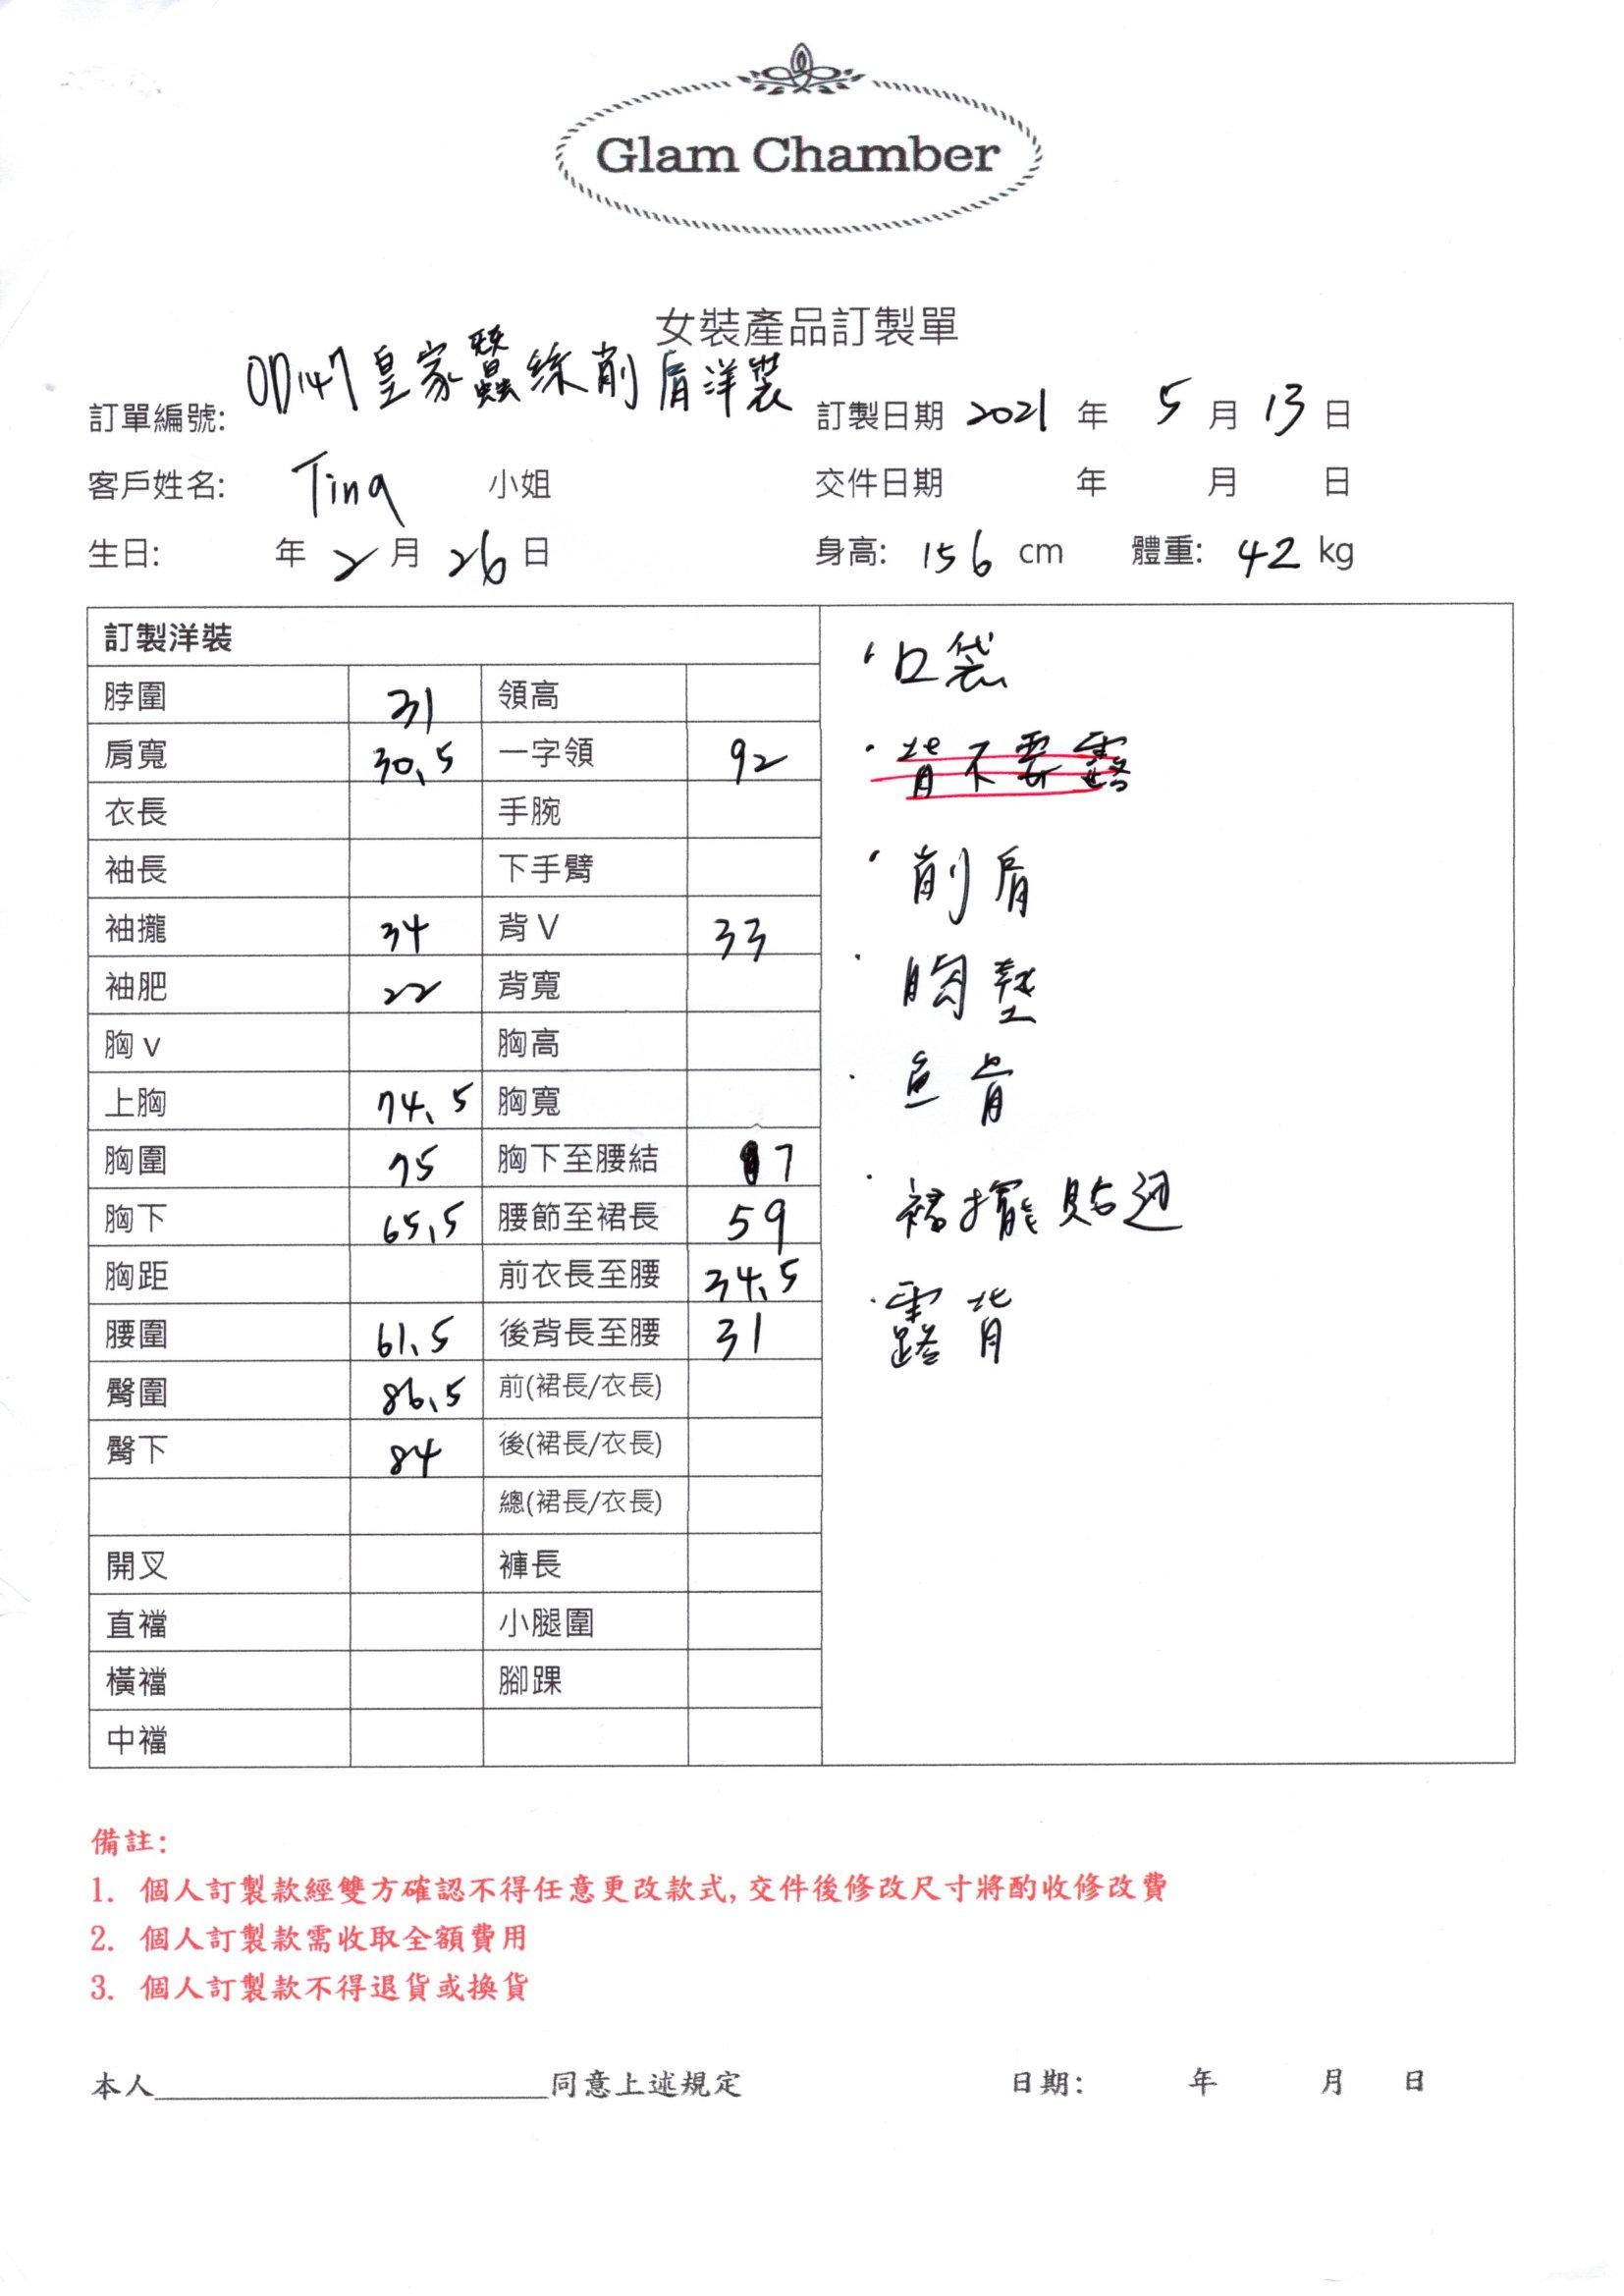 Glam Chamber
女裝產品訂製單
訂單編號: OD147皇家蠶絲削肩洋裝 訂製日期 2021 年 5 月 13 日
客戶姓名: Tina 小姐 交件日期 年 月 日
生日: 年 2 月 26 日 身高: 156 cm 體重: 42 kg
訂製洋裝
脖圍 31 領高
肩寬 30.5 一字領 92
衣長 手腕
袖長 下手臂
袖攏 34 背V 33
袖肥 22 背寬
胸v 胸高
上胸 74.5 胸寬
胸圍 75 胸下至腰結 17
胸下 65.5 腰節至裙長 59
胸距 前衣長至腰 34.5
腰圍 61.5 後背長至腰 31
臀圍 86.5 前(裙長/衣長)
臀下 84 後(裙長/衣長)
總(裙長/衣長)
開叉 褲長
直襠 小腿圍
橫襠 腳踝
中襠
·口袋
·背不要露
·削肩
·胸墊
·魚骨
·裙擺貼邊
·露背
備註:
1. 個人訂製款經雙方確認不得任意更改款式,交件後修改尺寸將酌收修改費
2. 個人訂製款需收取全額費用
3. 個人訂製款不得退貨或換貨
本人____________________同意上述規定 日期: 年 月 日